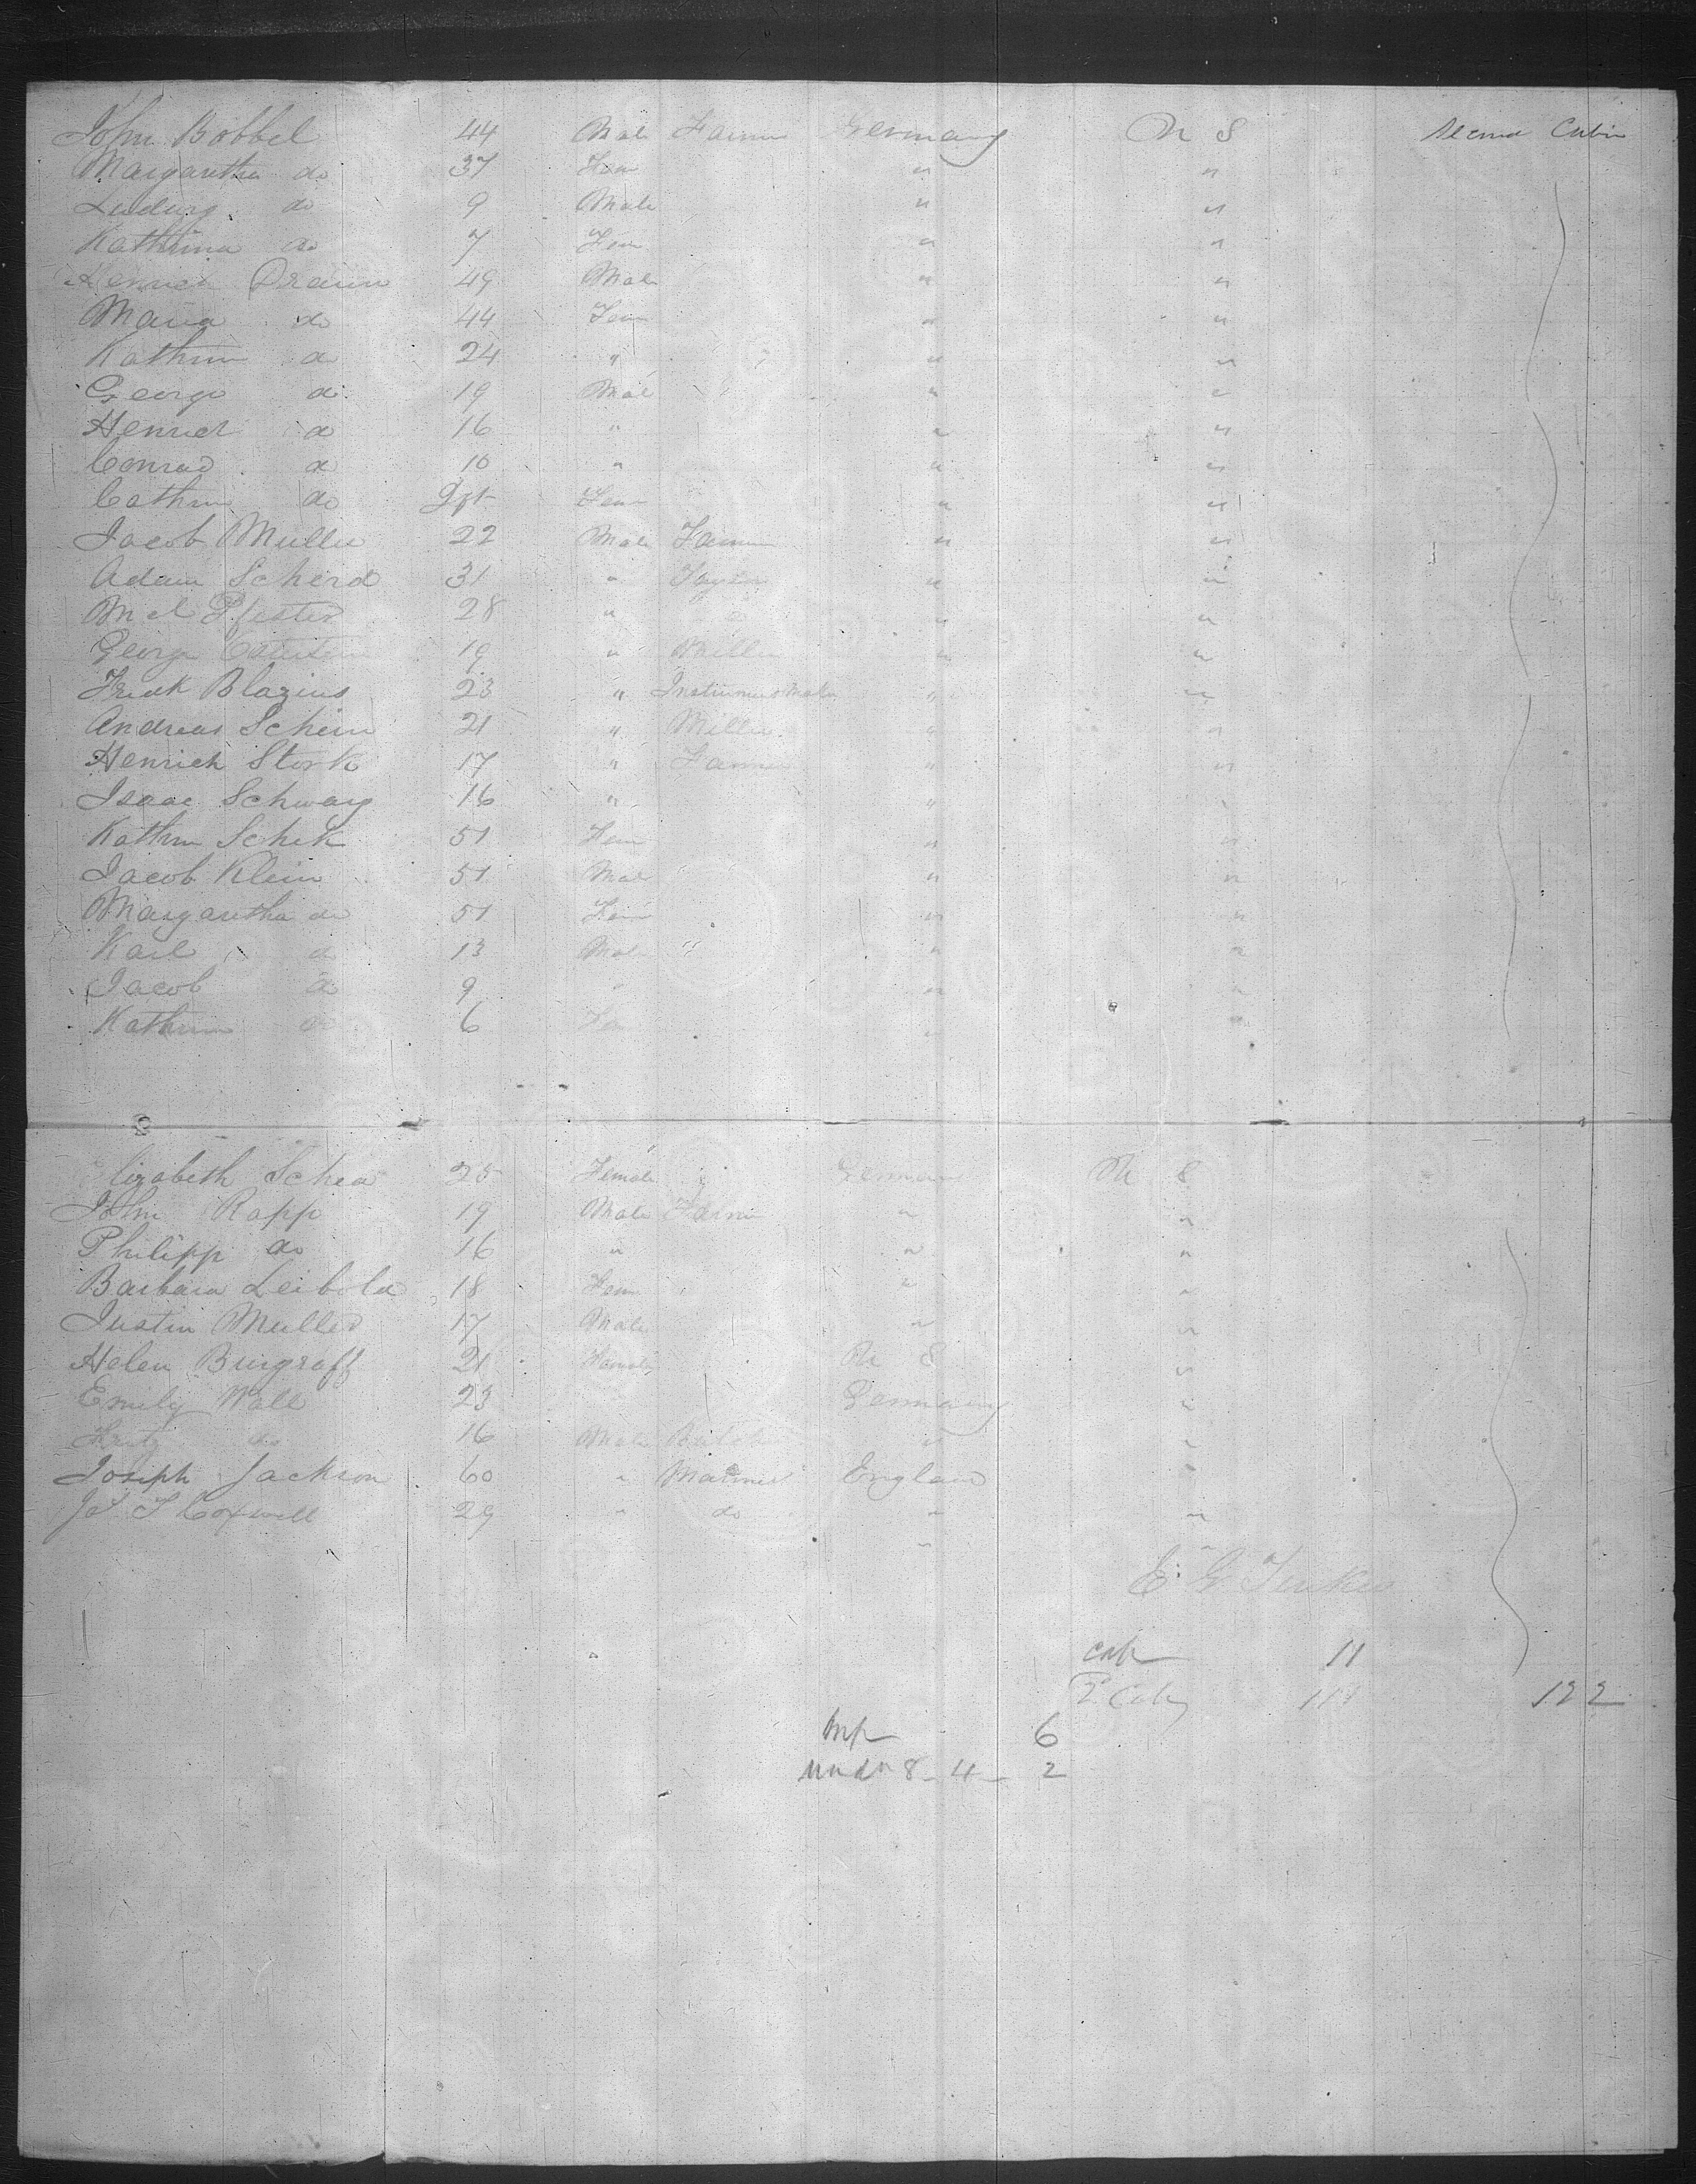 John Bobbel 44 Male Farmer Germany U S Second Cabin
Margaretha do 37 Fem " "
Ludwig do 9 Male " "
Kathrina do 7 Fem " "
Henrich Braun 49 Male " "
Maria do 44 Fem " "
Kathrin do 24 " " "
George do 19 Male " "
Henrich do 16 " " "
Conrad do 10 " " "
Cathrin do Fem " "
Jacob Muller 22 Male Farmer " "
Adam Scherd 31 " " "
Pfister 28 " " "
George 19 " Miller " "
Fredk Blazius 23 " Instrument Maker " "
Andreas Schein 21 " Miller " "
Henrich Stork 17 " Farmer " "
Isaac Schwarz 16 " " "
Kathrin Schek 51 Fem " "
Jacob Klein 51 Male " "
Margaretha do 51 Fem " "
Karl do 13 Male " " "
Jacob do 9 " " "
Kathrin do 6 Fem " "
Elizabeth 25 Female German U S
John Rapp 19 Male Farmer " "
Philipp do 16 " " "
Barbara Leibold 18 Fem " "
Justin Muller 17 Male " "
Helen Burgraff 21 Female U S "
Emily Wall 23 Germany "
Fritz do 16 Male " "
Joseph Jackson 60 " Mariner England "
Coxwell 29 " do " "
" "
E. G. Tinker
Cab 11
2 Cab 111 122
Inf 6
Under 8 - 4 - 2